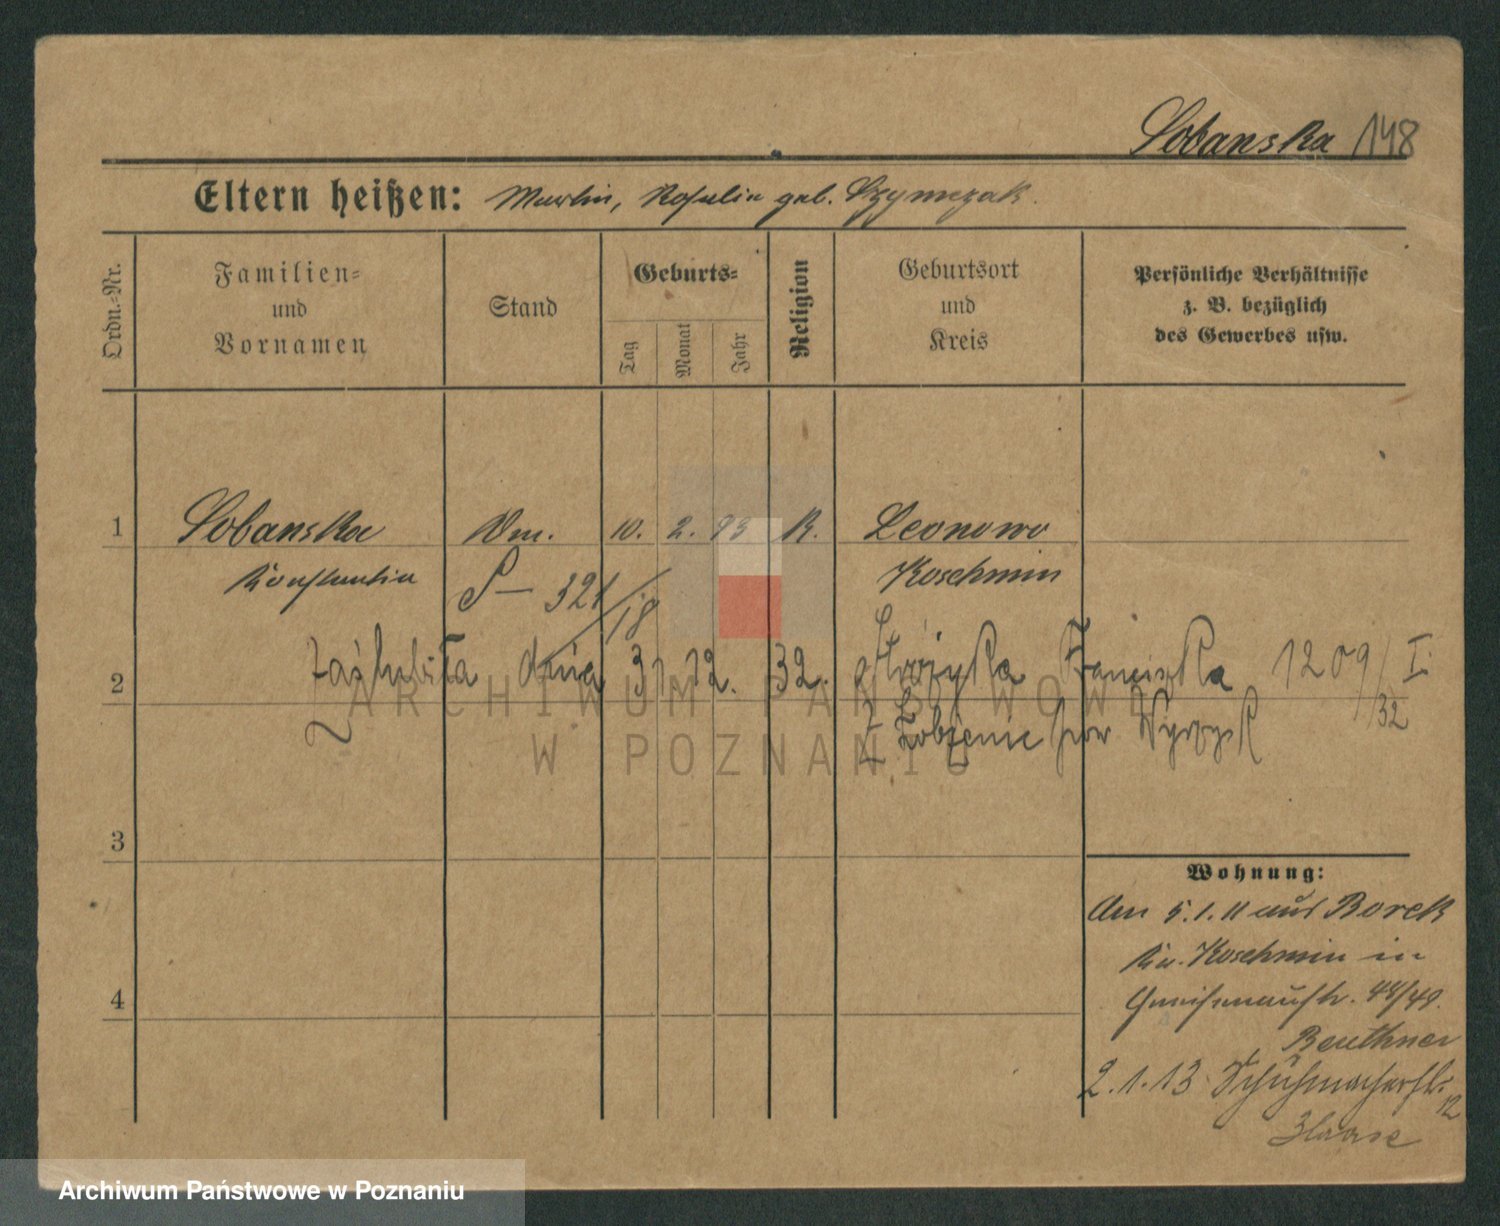 Sobanska 148
Eltern heißen: Martin, Rosalie geb. Szymczak.
Ordn.-Nr.
Familien-
und
Vornamen
Stand
Geburts-
Tag
Monat
Jahr
Religion
Geburtsort
und
Kreis
Persönliche Verhältnisse
z. B. bezüglich
des Gewerbes usw.
1 Sobanska 10. 2. 93 K. Leonowo
Konstantia Koschmin
S - 321/18
2 zaślubiła dnia 31. 12. 32. Franciszka 1209/I
32
z Łobżenic pow Wyrzysk
ARCHIWUM PAŃSTWOWE
W POZNANIU
3
4
Wohnung:
Am 5.1.11 aus Borek
Kr. Koschmin in
Gneisenaustr. 48/49.
Beuthner
2.1.13 Schuhmacherstr. 12
Haase
Archiwum Państwowe w Poznaniu